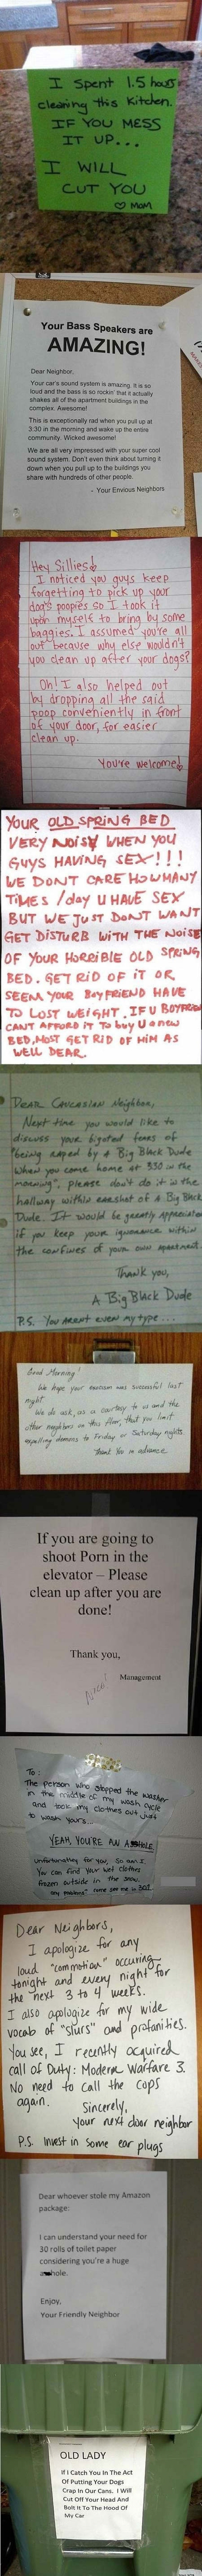 I spent 1.5 hours
cleaning this kitchen.
IF YOU MESS
IT UP...
I WILL
CUT YOU
♡ MOM
Your Bass Speakers are
AMAZING!
Dear Neighbor,
Your car's sound system is amazing. It is so
loud and the bass is so rockin' that it actually
shakes all of the apartment buildings in the
complex. Awesome!
This is exceptionally rad when you pull up at
3:30 in the morning and wake up the entire
community. Wicked awesome!
We are all very impressed with your super cool
sound system. Don't even think about turning it
down when you pull up to the buildings you
share with hundreds of other people.
- Your Envious Neighbors
Hey Sillies!
I noticed you guys keep
forgetting to pick up your
dog's poopies so I took it
upon myself to bring by some
baggies. I assumed you're all
out because why else wouldn't
you clean up after your dogs?
Oh! I also helped out
by dropping all the said
poop conveniently in front
of your door, for easier
clean up.
You're welcome!
YOUR OLD SPRING BED
VERY NOISY WHEN YOU
GUYS HAVING SEX!!!
WE DONT CARE HOW MANY
TIMES /day U HAVE SEX
BUT WE JUST DONT WANT
GET DISTURB WITH THE NOISE
OF YOUR HORRIBLE OLD SPRING
BED. GET RID OF IT OR
SEEM YOUR BOYFRIEND HAVE
TO LOST WEIGHT. IF U BOYFRIEN
CANT AFFORD IT TO buy U a new
BED, MOST GET RID OF HIM AS
WELL DEAR.
DEAR CAUCASIAN Neighbor,
Next time you would like to
discuss your bigoted fears of
"being raped by a Big Black Dude
when you come home at 330 in the
morning", please don't do it in the
hallway within earshot of A Big Black
Dude. It would be greatly appreciated
if you keep your ignorance within
the confines of your own apartment.
Thank you,
A Big Black Dude
P.S. You aren't even my type...
Good Morning!
We hope your exorcism was successful last
night.
We do ask, as a courtesy to us and the
other neighbors on this floor, that you limit
expelling demons to Friday or Saturday nights.
Thank You in advance
If you are going to
shoot Porn in the
elevator – Please
clean up after you are
done!
Thank you,
Management
Nice!
To:
The person who stopped the washer
in the middle of my wash cycle
and took my clothes out just
to wash yours...
YEAH, YOU'RE AN A HOLE
Unfortunately for you, So am I.
You can find your wet clothes
frozen outside in the snow.
any problems? come see me in 302
Dear Neighbors,
I apologize for any
loud "commotion" occuring
tonight and every night for
the next 3 to 4 weeks.
I also apologize for my wide
vocab of "slurs" and profanities.
You see, I recently acquired
Call of Duty: Modern Warfare 3.
No need to call the cops
again.
Sincerely,
Your next door neighbor
P.S. Invest in some ear plugs
Dear whoever stole my Amazon
package:
I can understand your need for
30 rolls of toilet paper
considering you're a huge
a hole.
Enjoy,
Your Friendly Neighbor
OLD LADY
If I Catch You In The Act
Of Putting Your Dogs
Crap In Our Cans, I Will
Cut Off Your Head And
Bolt It To The Hood Of
My Car